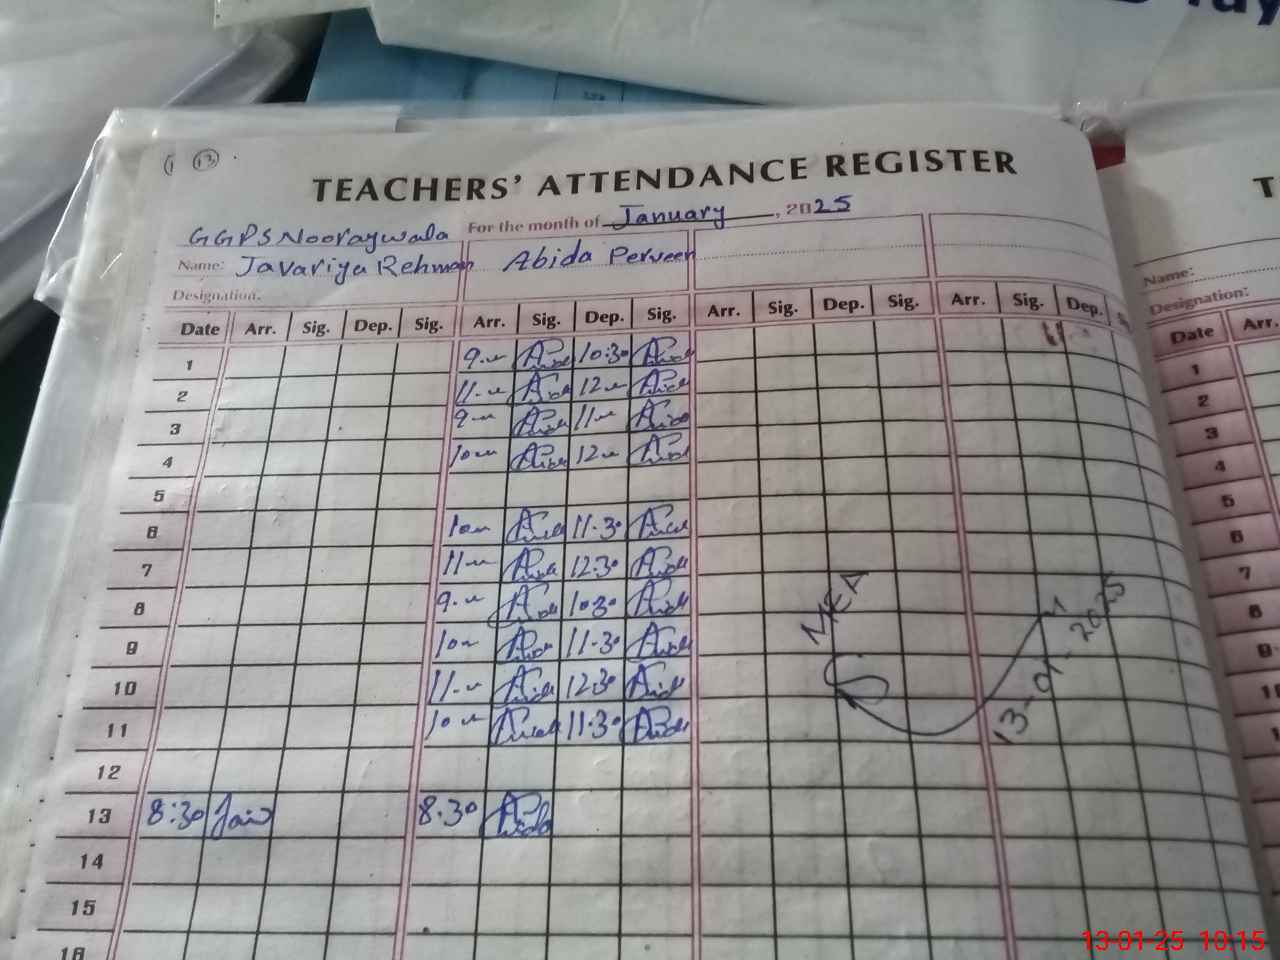 13
TEACHERS' ATTENDANCE REGISTER
GGPS Nooraywala For the month of January, 2025
Name: Javariya Rehman Abida Perveen
Designation:
Date Arr. Sig. Dep. Sig. Arr. Sig. Dep. Sig. Arr. Sig. Dep. Sig. Arr. Sig. Dep.
1 9 10:30
2 11 12
3 9 11
4 10 12
5
6 10 11.30
7 11 12.30
8 9 10.30
9 10 11.30
10 11 12.30
11 10 11.30
12
13 8:30 8.30
14
15
16
MEA
13-01-2025
T
Name:
Designation:
Date Arr.
1
2
3
4
5
6
7
8
9
13-01-25 10:15